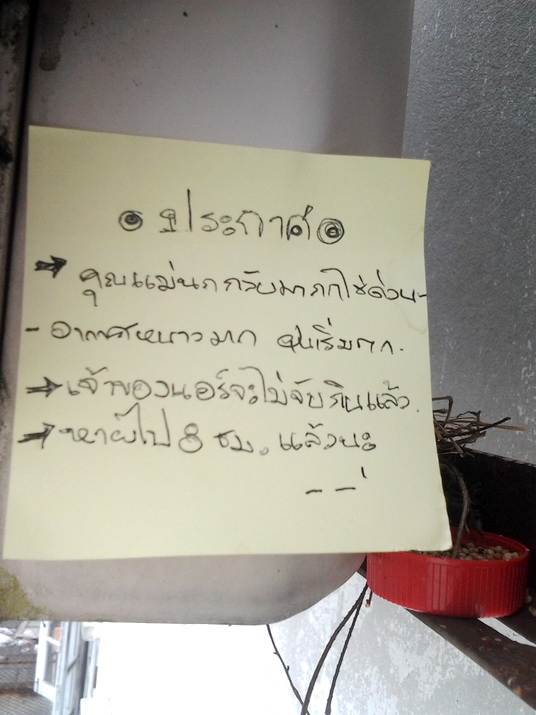 ประกาศ
คุณแม่นกกลับมากกไข่ด่วน-
- อากาศหนาวมาก ฝนเริ่มตก.
เจ้าของนอร์จะไม่จับกินแล้ว.
หายไป 8 ชม. แล้วนะ